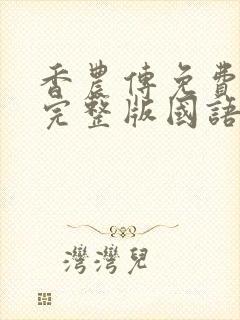 香農傳免費
完整版國語
灣灣兒